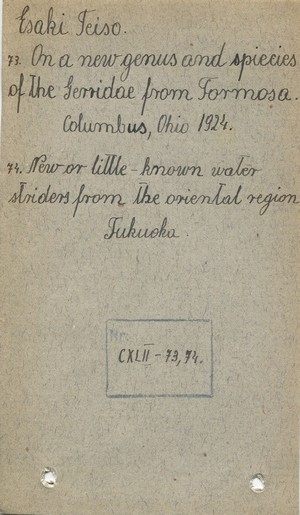 Esaki Teiso.
73. On a new genus and spiecies
of the Gerridae from Formosa.
Columbus, Ohio 1924.
74. New or little-known water
striders from the oriental region
Fukuoka
Nr.
CXLII - 73, 74.